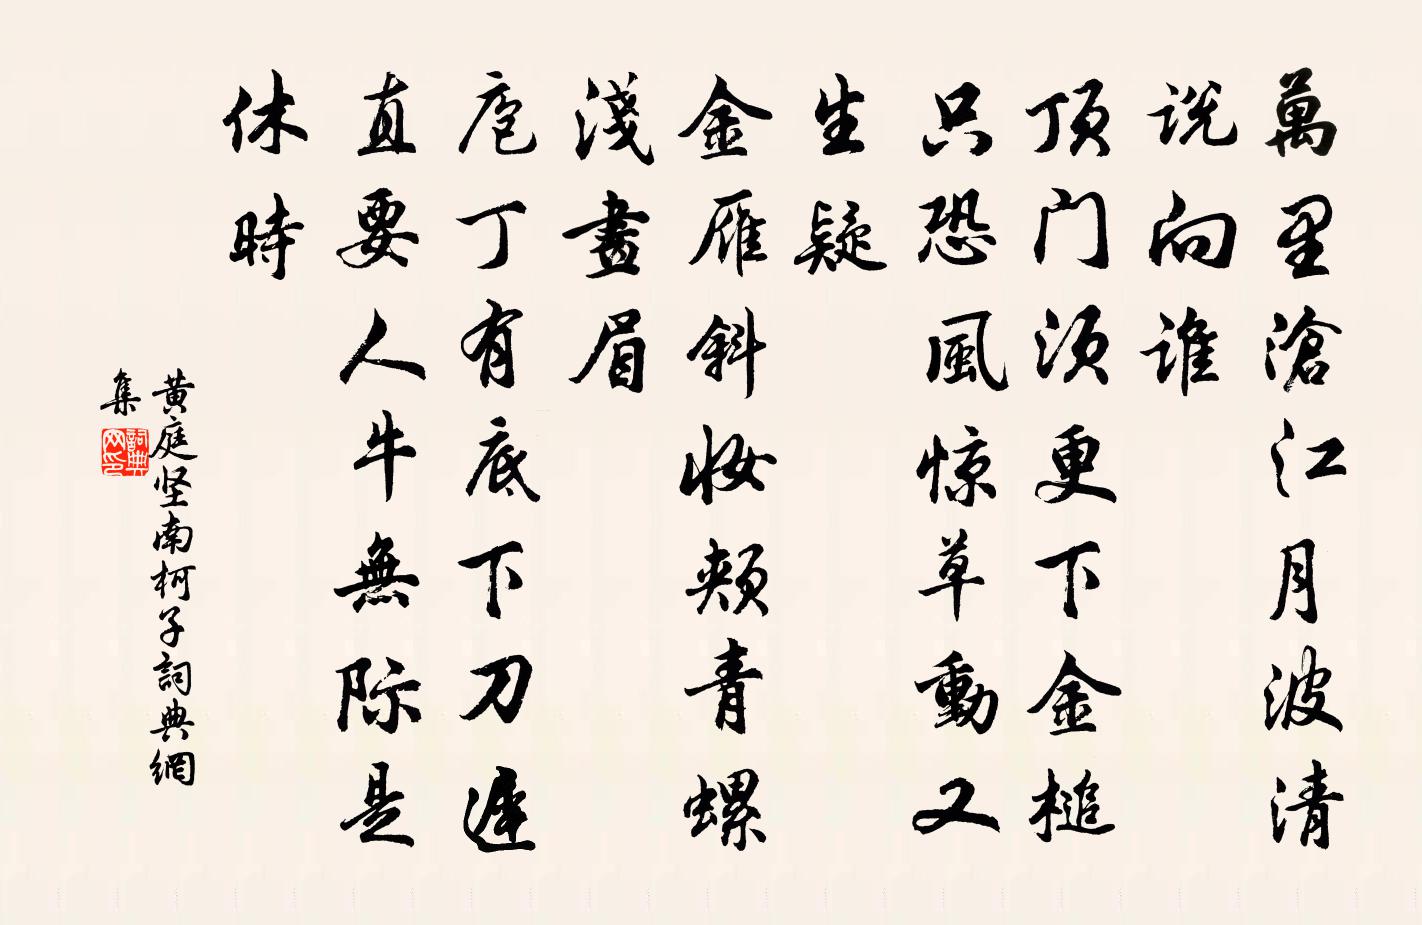 萬里滄江月波清
説向誰
頂门須更下金槌
只恐風惊草動又
生疑
金雁斜妆頰青螺
淺畫眉
庖丁有底下刀遲
直要人牛無际是
休時
黄庭坚南柯子詞典網
集
詞典
网印